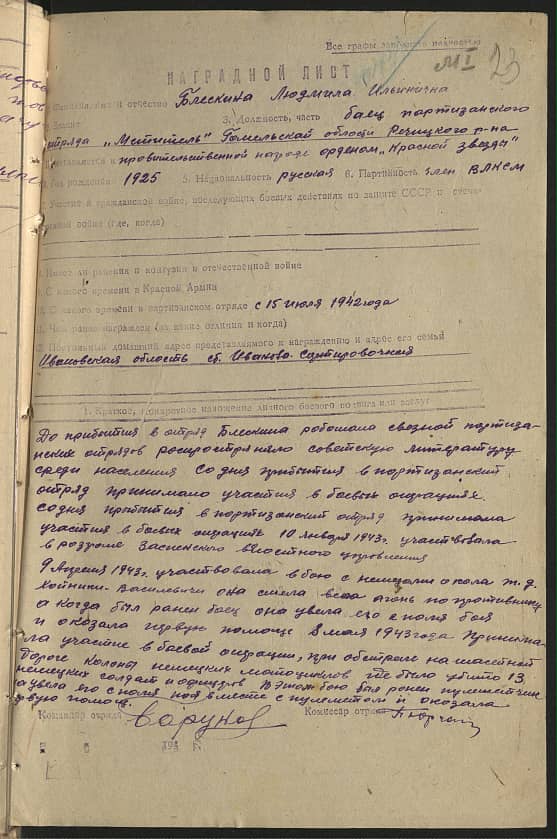 Все графы заполнять полностью
23
НАГРАДНОЙ ЛИСТ
1. Фамилия, имя и отчество Блескина Людмила Ильинична
2. Звание 3. Должность, часть боец партизанского
отряда „Мститель" Гомельской области Речицкого р-на
4. Представляется к правительственной награде орденом „Красной звезды"
5. Год рождения 1925 5. Национальность русская 6. Партийность член ВЛКСМ
7. Участие в гражданской войне, последующих боевых действиях по защите СССР и отече-
ственной войне (где, когда)
8. Имеет ли ранения и контузии в отечественной войне
9. С какого времени в Красной Армии
10. С какого времени в партизанском отряде с 15 июля 1942 года
11. Чем ранее награжден (за какие отличия и когда)
12. Постоянный домашний адрес представляемого к награждению и адрес его семьи
Ивановская область ст. Иваново-Сортировочная
1. Краткое, конкретное изложение личного боевого подвига или заслуг
До прибытия в отряд Блескина работала связной партиза-
нских отрядов распространяла советскую литературу
среди населения Со дня прибытия в партизанский
отряд принимала участия в боевых операциях.
Со дня прибытия в партизанский отряд принимала
участия в боевых операциях 10 января 1943г. участвовала
в разгроме управления
9 Апреля 1943г. участвовала в бою с немцами около ж.д.
Хойники-Василевичи она вела огонь по противнику
а когда был ранен боец она увела его с поля боя
и оказала первую помощь 8 мая 1943 года принима-
ла участие в боевой операции, при обстреле на шоссейной
дороге колоны немецких мотоциклов где было убито 13
немецких солдат и офицеров В этом бою был ранен пулеметчик
а увела его с поля боя вместе с пулеметом и оказала
первую помощь.
Командир отряда Комиссар отряда
194 г.